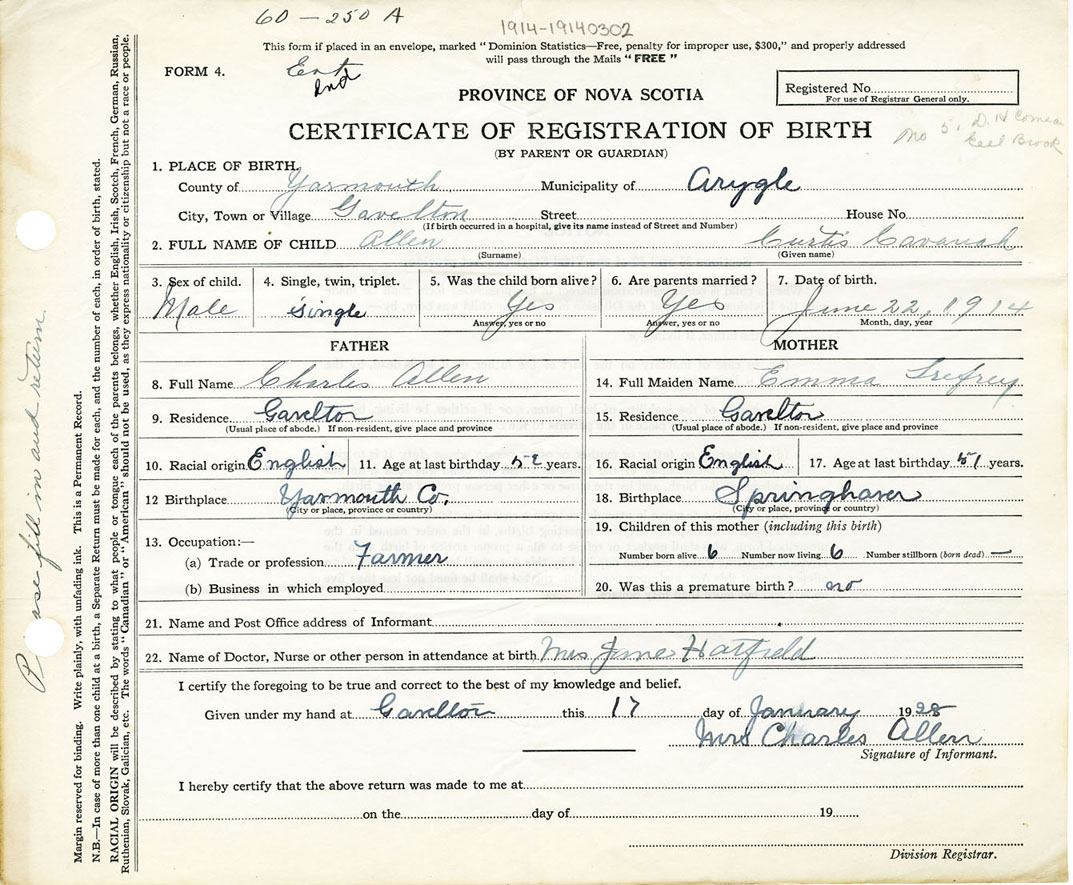 60 - 250 A
1914-19140302
This form if placed in an envelope, marked "Dominion Statistics—Free, penalty for improper use, $300," and properly addressed
will pass through the Mails "FREE"
FORM 4.
Ent
Ind
Registered No.
For use of Registrar General only.
PROVINCE OF NOVA SCOTIA
CERTIFICATE OF REGISTRATION OF BIRTH
No 5, D. H Comeau
Eel Brook
(BY PARENT OR GUARDIAN)
1. PLACE OF BIRTH,
County of Yarmouth Municipality of Arygle
City, Town or Village Gavelton Street House No.
(If birth occurred in a hospital, give its name instead of Street and Number)
2. FULL NAME OF CHILD Allen Curtis Cavanah
(Surname) (Given name)
3. Sex of child. 4. Single, twin, triplet. 5. Was the child born alive? 6. Are parents married? 7. Date of birth.
Male single Yes Yes June 22, 1914
Answer, yes or no Answer, yes or no Month, day, year
FATHER MOTHER
8. Full Name Charles Allen 14. Full Maiden Name Emma Trefrey
9. Residence Gavelton 15. Residence Gavelton
(Usual place of abode.) If non-resident, give place and province (Usual place of abode.) If non-resident, give place and province
10. Racial origin English 11. Age at last birthday 52 years. 16. Racial origin English 17. Age at last birthday 51 years.
12 Birthplace Yarmouth Co. 18. Birthplace Springhaven
(City or place, province or country) (City or place, province or country)
19. Children of this mother (including this birth)
13. Occupation:—
(a) Trade or profession Farmer Number born alive 6 Number now living 6 Number stillborn (born dead) —
(b) Business in which employed 20. Was this a premature birth? no
21. Name and Post Office address of Informant
22. Name of Doctor, Nurse or other person in attendance at birth Mrs Jane Hatfield
I certify the foregoing to be true and correct to the best of my knowledge and belief.
Given under my hand at Gavelton this 17 day of January 1928
Mrs Charles Allen
Signature of Informant.
I hereby certify that the above return was made to me at
on the day of 19
Division Registrar.
Please fill in and return.
Margin reserved for binding. Write plainly, with unfading ink. This is a Permanent Record.
N.B.—In case of more than one child at a birth, a Separate Return must be made for each, and the number of each, in order of birth, stated.
RACIAL ORIGIN will be described by stating to what people or tongue each of the parents belongs, whether English, Irish, Scotch, French, German, Russian,
Ruthenian, Slovak, Galician, etc. The words "Canadian" or "American" should not be used, as they express nationality or citizenship but not a race or people.